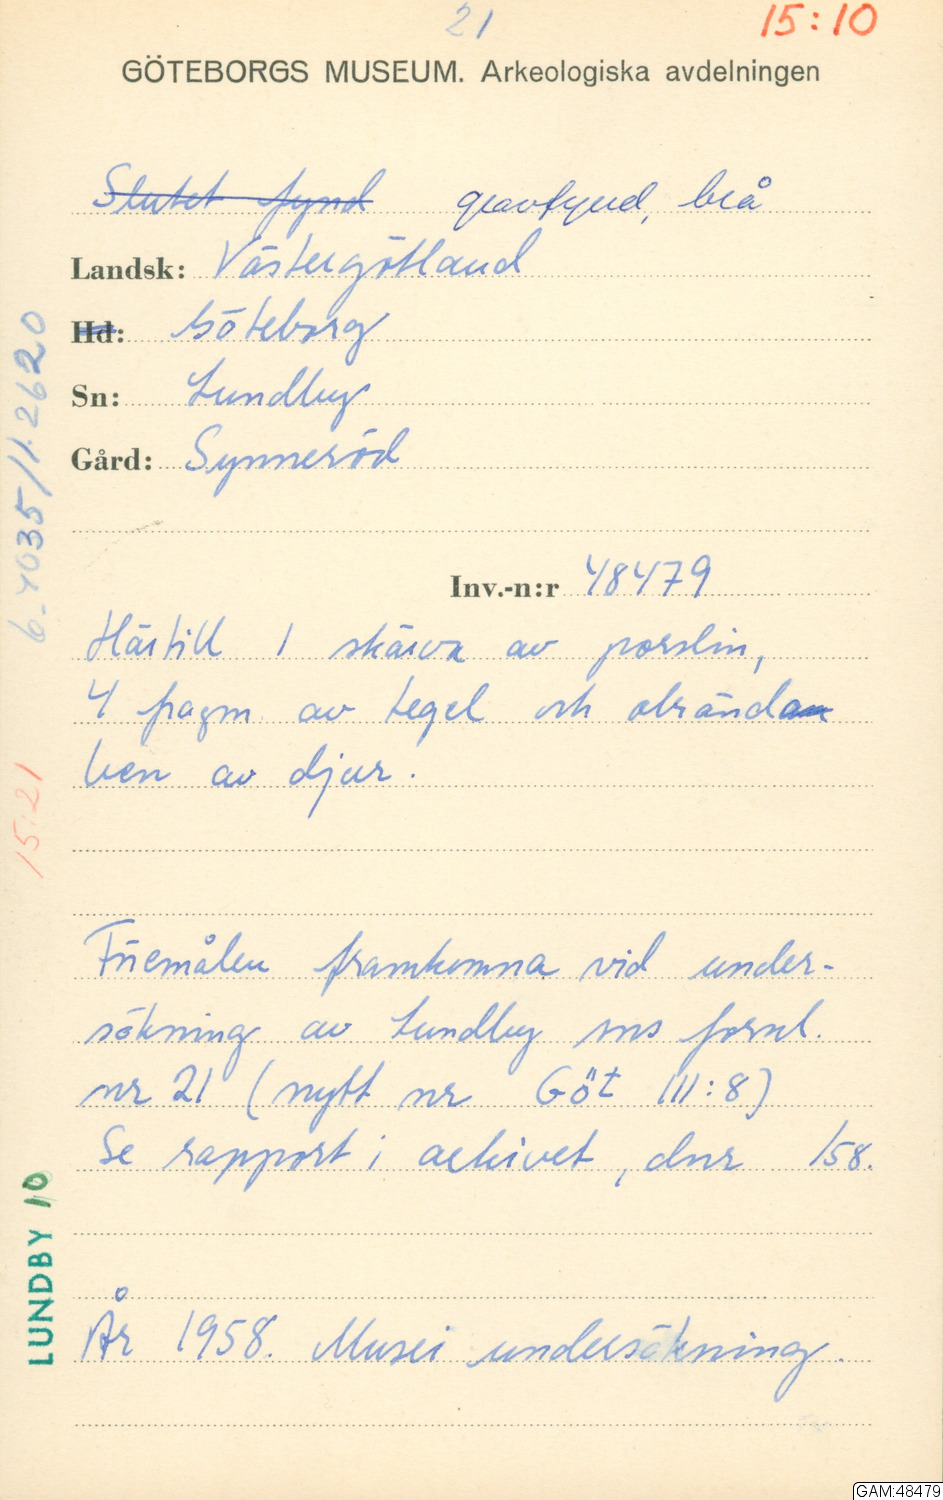 21
15:10
GÖTEBORGS MUSEUM. Arkeologiska avdelningen
Slutet fynd gravfynd, brå
Landsk: Västergötland
Hd: Göteborg
Sn: Lundby
Gård: Synneröd
Inv.-n:r 48479
Härtill 1 skärva av porslin,
4 fragm. av tegel och obrända
ben av djur.
Föremålen framkomna vid under-
sökning av Lundby sns fornl.
nr 21 (nytt nr Göt 111:8)
Se rapport i arkivet, dnr /58.
År 1958. Musei undersökning.
6-4035/1.2620
15:21
LUNDBY 10
GAM:48479